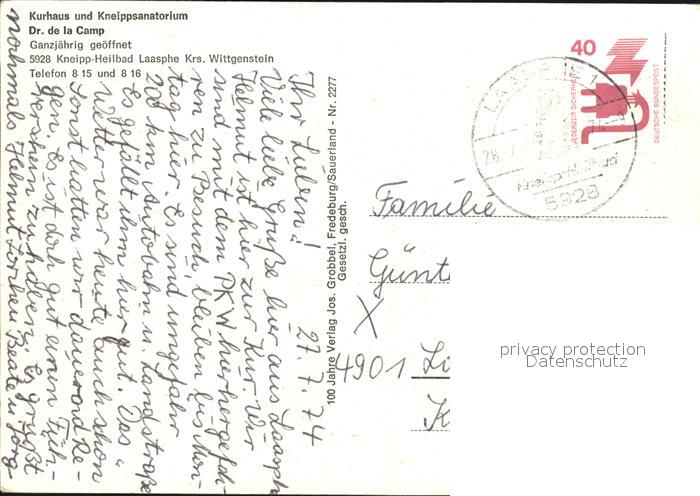 Kurhaus und Kneippsanatorium
Dr. de la Camp
Ganzjährig geöffnet
5928 Kneipp-Heilbad Laasphe Krs. Wittgenstein
Telefon 8 15 und 8 16
27.7.74
Ihr Lieben!
Viele liebe Grüße hier aus Laasphe
Helmut ist hier zur Kur. Wir
sind mit dem PKW hierhergefah-
ren zu Besuch, bleiben bis Mon-
tag hier. Es sind ungefähr
200 km Autobahn u. Landstraße
Es gefällt ihm hier gut. Das
Wetter war heute auch schon
Sonst hatten wir dauernd Re-
gen. Es ist doch gut einen Füh-
rerschein zu haben. Es grüßt
nochmals Helmut Beate u. Jörg
100 Jahre Verlag Jos. Grobbel, Fredeburg/Sauerland - Nr. 2277
Gesetzl. gesch.
40
JEDERZEIT SICHERHEIT
DEUTSCHE BUNDESPOST
LAASPHE 1
28.-7.74
Kneipp-Heilbad
5928
Familie
Günt
X
4901
K
privacy protection
Datenschutz